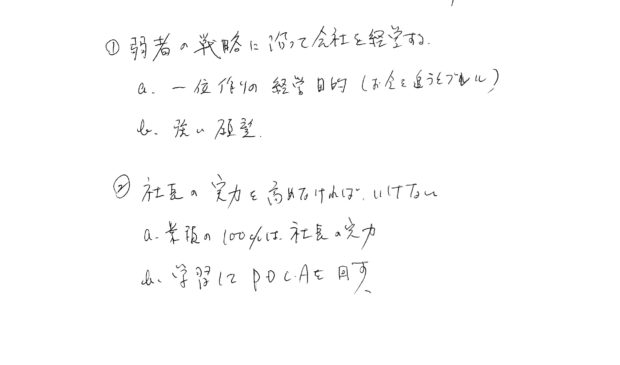 ① 弱者の戦略に沿って会社を経営する.
a. 一位作りの経営目的 (お金を追うとブレル)
b. 強い願望.
② 社長の実力を高めなければ、いけない
a. 業績の100%は、社長の実力
b. 学習してPDCAを回す、